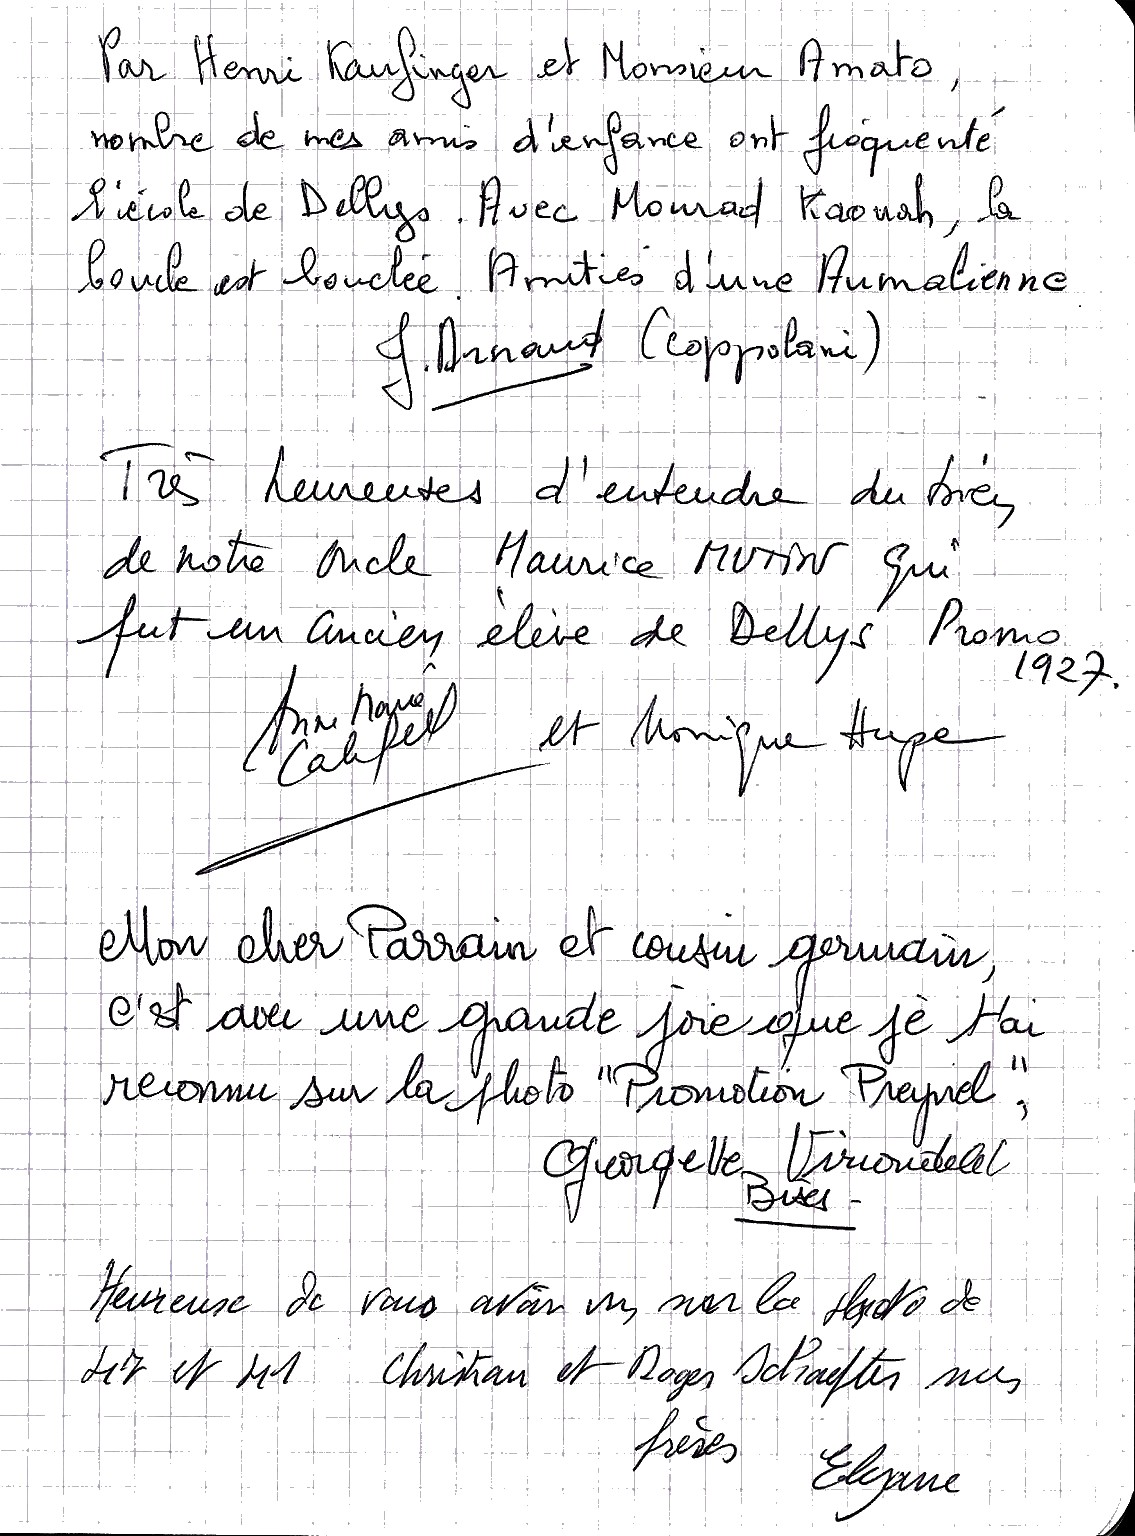 Par Henri Kaufinger et Monsieur Amato,
nombre de mes amis d'enfance ont fréquenté
l'école de Dellys. Avec Mourad Kaouah, la
boucle est bouclée. Amitiés d'une Aumalienne
J. Arnaud (Coppolani)
Très heureuses d'entendre du bien
de notre oncle Maurice MUTIN qui
fut un ancien élève de Dellys Promo
1927.
Anne Marie
et Monique Hupe
Mon cher Parrain et cousin germain,
c'est avec une grande joie que je t'ai
reconnu sur la photo "Promotion Preynel",
Georgette
Bises -
Heureuse de vous avoir vu sur la photo de
47 et 41 Christian et Roger nos
frères
Elyane